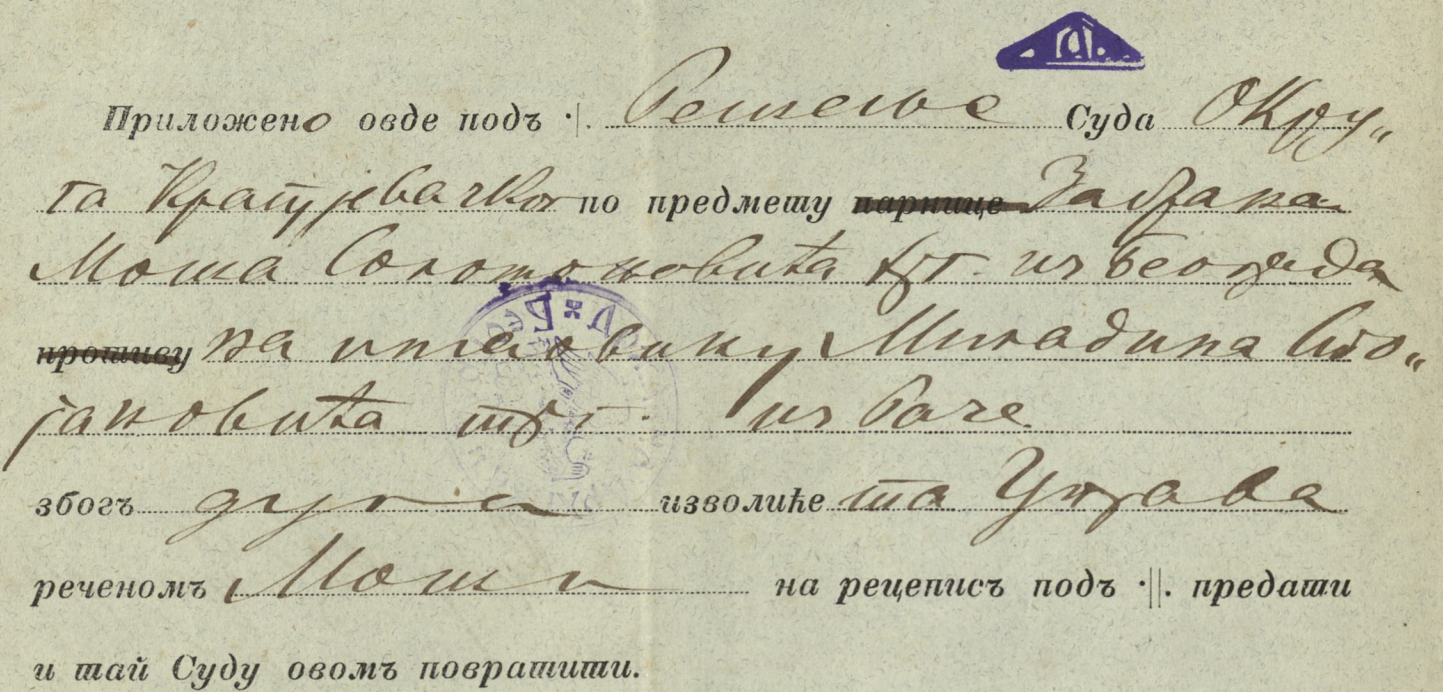 Приложено овде подъ ·|. Решење Суда Окру„
га Крагујевачког по предмету парнице Забрана
Моша Соломоновића трг. из Београда
противу на имаовину Миладина Сто„
јановића трг. из Раче
збогъ дуга изволиће та Управа
реченомъ Моши на рецеписъ подъ ·||. предати
и тай Суду овомъ повратити.